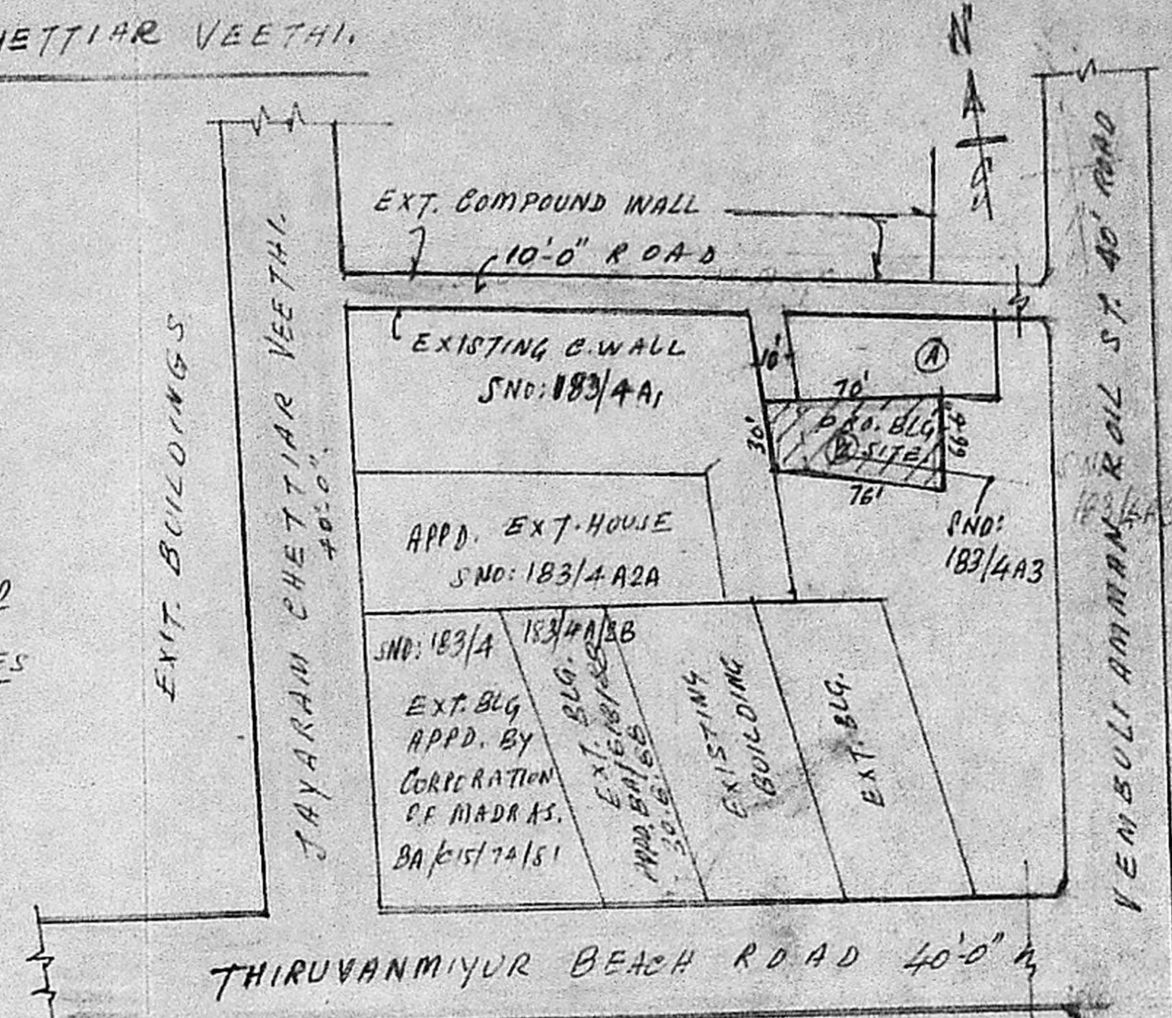 HETTIAR VEETHI.
N
S
EXT. COMPOUND WALL
10'-0" ROAD
EXISTING C. WALL
SNO: 183/4A1
10'
A
70'
PRO. BLG
B SITE
30'
76'
SNO:
183/4A3
APPD. EXT. HOUSE
SNO: 183/4A2A
SNO: 183/4
EXT. BLG
APPD. BY
CORPORATION
OF MADRAS.
BA/C15/74/81
EXT. BLG.
EXISTING
BUILDING
EXT. BLG.
EXIT. BUILDINGS
JAYARAM CHETTIAR VEETHI.
40'-0".
VEMBULI AMMAN KOIL ST. 40' ROAD
THIRUVANMIYUR BEACH ROAD 40'-0"
ES